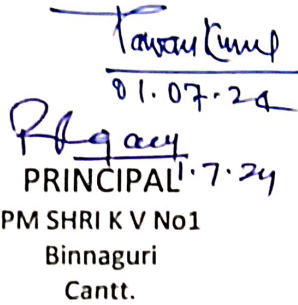 Pawan Kumar
01.07.24
PRINCIPAL 1.7.24
PM SHRI K V No1
Binnaguri
Cantt.